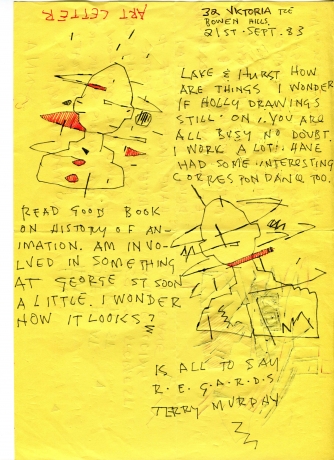 ART LETTER
32 VIKTORIA TCE
BOWEN HILLS.
21ST. SEPT. 83
LAKE & HURST HOW
ARE THINGS I WONDER
IF HOLLY DRAWINGS
STILL ON. YOU ARE
ALL BUSY NO DOUBT.
I WORK A LOT. HAVE
HAD SOME INTERESTING
CORRESPONDANCE TOO.
READ GOOD BOOK
ON HISTORY OF AN-
IMATION. AM INVO-
LVED IN SOMETHING
AT GEORGE ST SOON
A LITTLE. I WONDER
HOW IT LOOKS?
IS ALL TO SAY
R.E.G.A.R.D.S
TERRY MURPHY